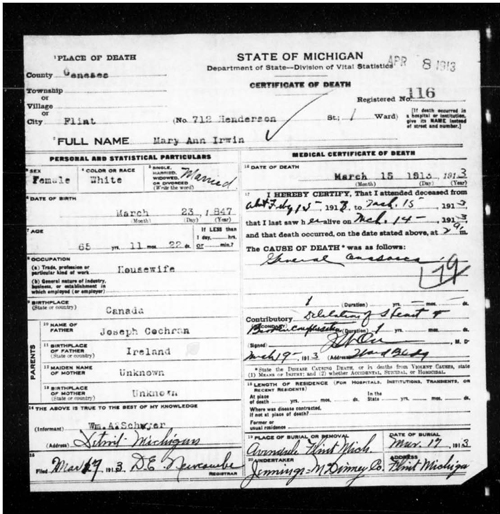 APR 8 1913
PLACE OF DEATH
STATE OF MICHIGAN
County Genesee
Department of State—Division of Vital Statistics
CERTIFICATE OF DEATH
Township
or
Village
or
City Flint
Registered No. 116
(No. 712 Henderson St; 1 Ward)
[If death occurred in a hospital or institution, give its NAME instead of street and number.]
FULL NAME Mary Ann Irwin
PERSONAL AND STATISTICAL PARTICULARS
SEX
Female
COLOR OR RACE
White
SINGLE, MARRIED, WIDOWED, OR DIVORCED
(Write the word)
Married
DATE OF BIRTH
March 23, 1847
(Month) (Day) (Year)
AGE
65 yrs. 11 mos. 22 ds.
If LESS than
1 day, hrs.
or min.?
OCCUPATION
(a) Trade, profession or particular kind of work
Housewife
(b) General nature of industry, business, or establishment in which employed (or employer)
BIRTHPLACE
(State or country)
Canada
PARENTS
10 NAME OF FATHER
Joseph Cochran
11 BIRTHPLACE OF FATHER
(State or country)
Ireland
12 MAIDEN NAME OF MOTHER
Unknown
13 BIRTHPLACE OF MOTHER
(State or country)
Unknown
14 THE ABOVE IS TRUE TO THE BEST OF MY KNOWLEDGE
(Informant) Wm. A. Schwjer
(Address) Detroit Michigan
Filed Mar 17 1913 D.E. Newcombe
REGISTRAR
MEDICAL CERTIFICATE OF DEATH
DATE OF DEATH
March 15 1913 1913
(Month) (Day) (Year)
I HEREBY CERTIFY, That I attended deceased from
1913, to Mch. 15 1913
that I last saw her alive on Mch. 14 1913
and that death occurred, on the date stated above, at
The CAUSE OF DEATH was as follows:
General Anasarca
79
(Duration) yrs. mos. ds.
Contributory Dilatation of Heart &
(Duration) yrs. mos. ds.
(Signed) M. D.
Mch 19 1913 (Address)
State the Disease Causing Death, or in deaths from Violent Causes, state (1) Means of Injury; and (2) whether Accidental, Suicidal, or Homicidal.
LENGTH OF RESIDENCE (For Hospitals, Institutions, Transients, or Recent Residents)
At place of death yrs. mos. ds.
In the State yrs. mos. ds.
Where was disease contracted, if not at place of death?
Former or usual residence
PLACE OF BURIAL OR REMOVAL
Avondale Flint Mich.
DATE OF BURIAL
Mar. 17 1913
UNDERTAKER
Jennings-McDinney Co.
ADDRESS
Flint Michigan